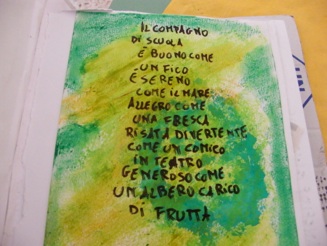 IL COMPAGNO
DI SCUOLA
È BUONO COME
UN FICO
È SERENO
COME IL MARE
ALLEGRO COME
UNA FRESCA
RISATA DIVERTENTE
COME UN COMICO
IN TEATRO
GENEROSO COME
UN ALBERO CARICO
DI FRUTTA